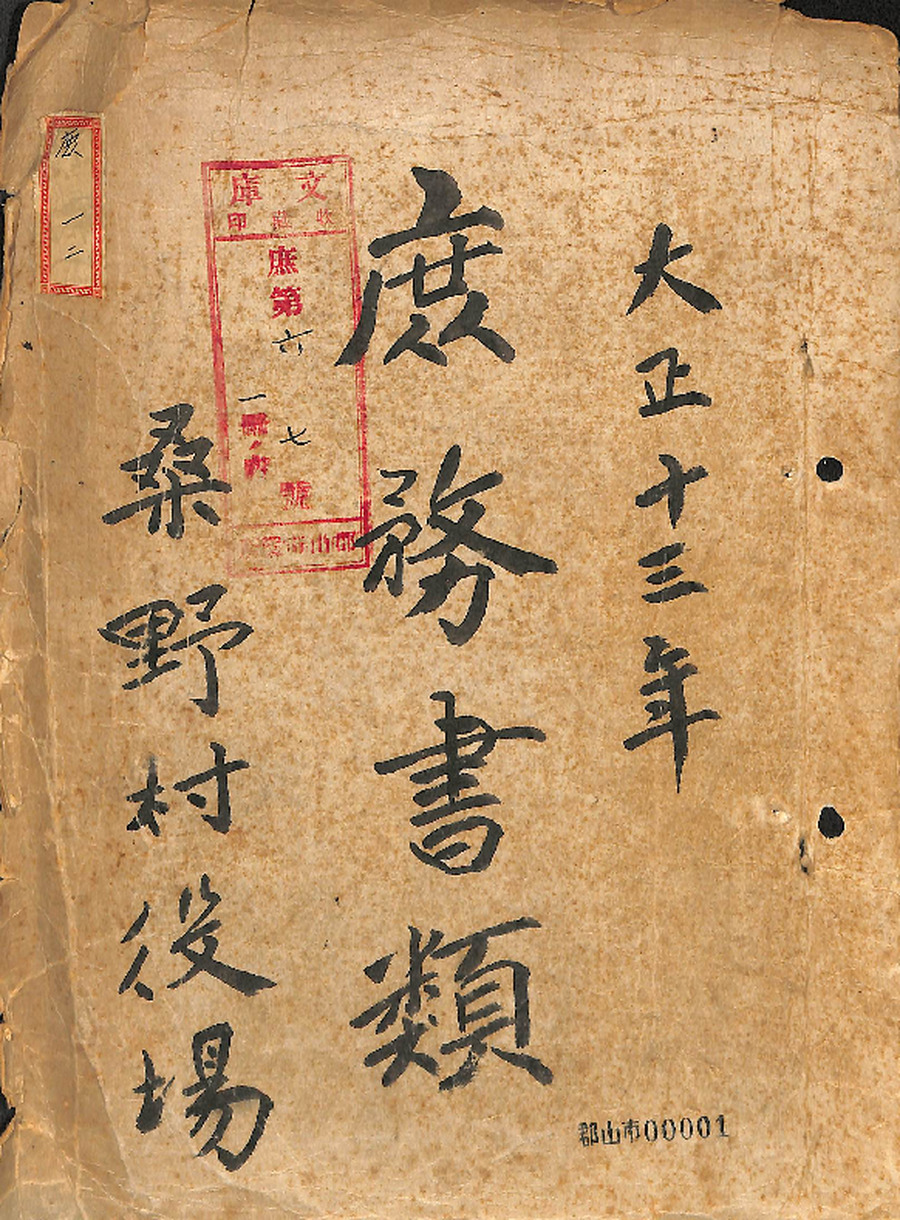 大正十三年
庶務書類
桑野村役場
文庫
収蔵印
庶第六七號
一冊ノ内
郡山市役所
庶一二
郡山市00001